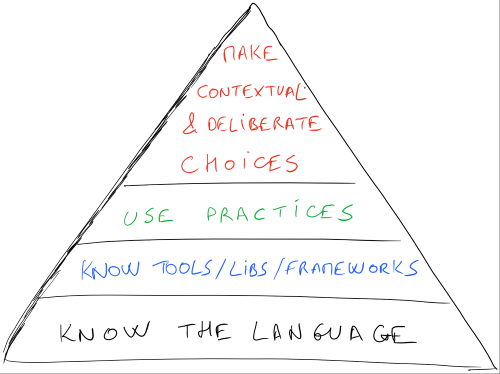 MAKE
CONTEXTUAL
& DELIBERATE
CHOICES
USE PRACTICES
KNOW TOOLS/LIBS/FRAMEWORKS
KNOW THE LANGUAGE